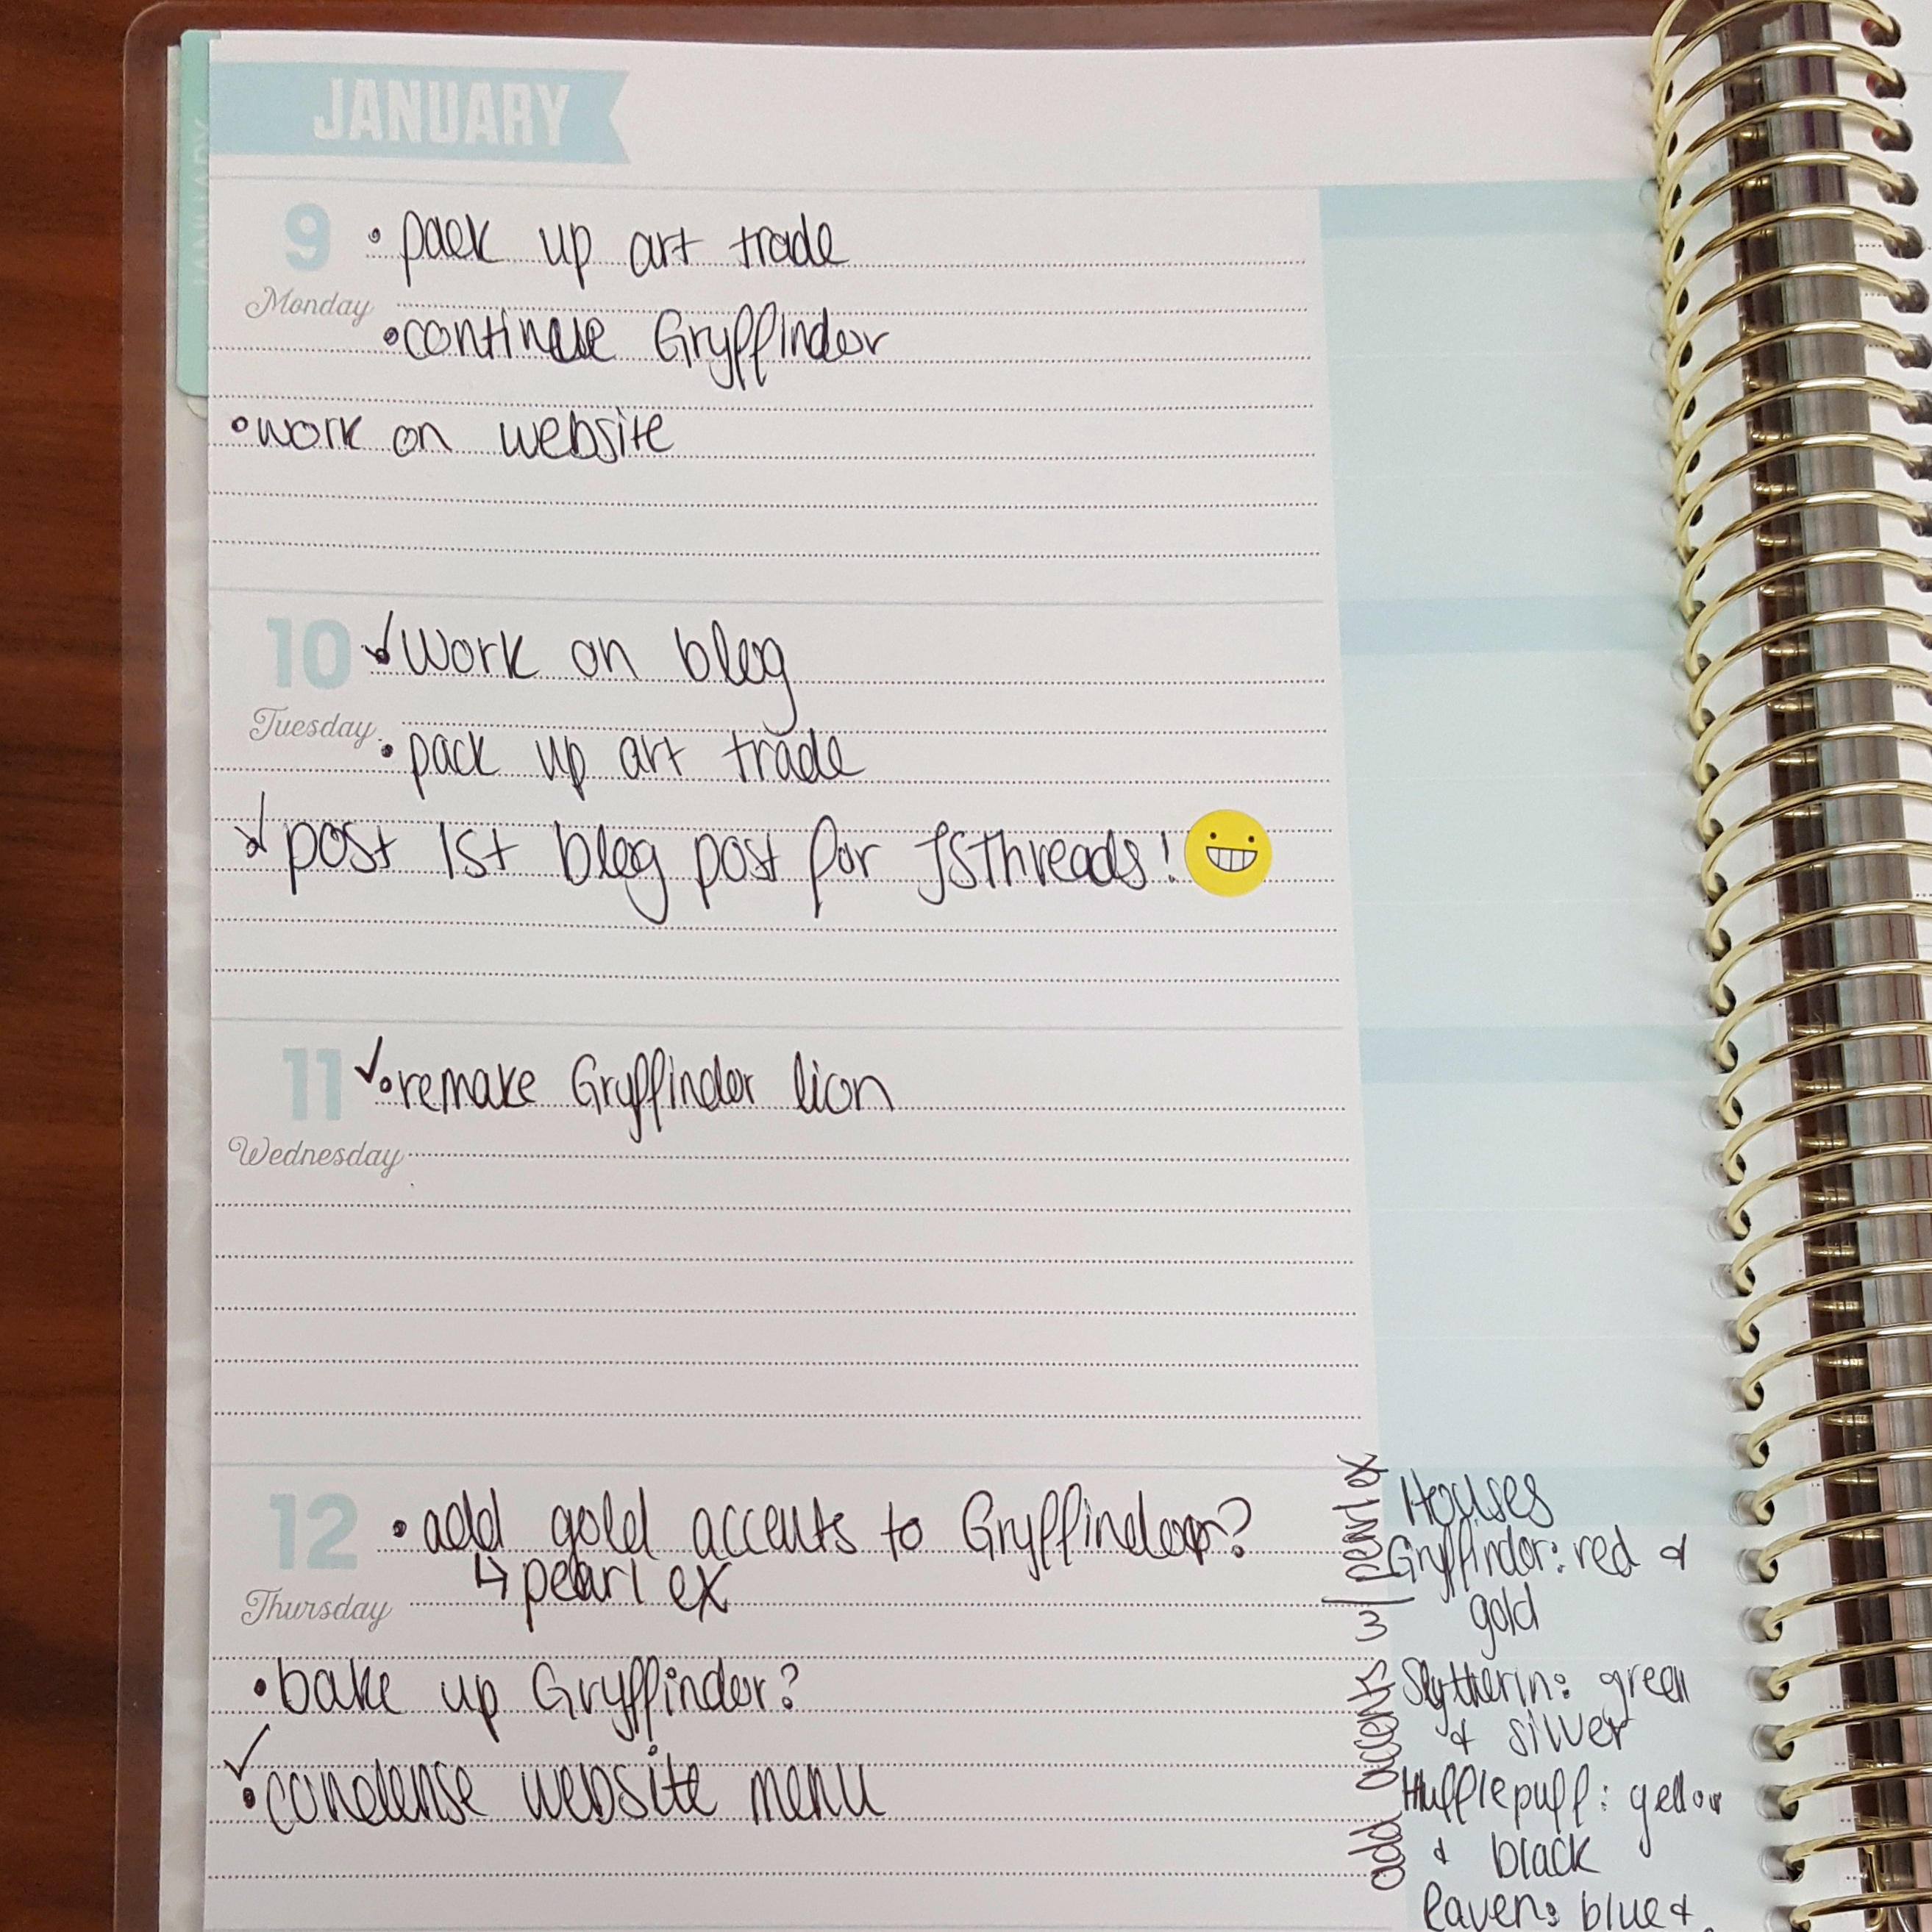 JANUARY
JANUARY
9
Monday
• pack up art trade
• continue Gryffindor
• work on website
10
Tuesday
✓ Work on blog
• pack up art trade
✓ post 1st blog post for JSThreads!
11
Wednesday
✓ • remake Gryffindor lion
12
Thursday
• add gold accents to Gryffindor?
↳ pearl ex
• bake up Gryffindor?
✓ • condense website menu
add accents w/ pearl ex
Houses
Gryffindor: red &
gold
Slytherin: green
& silver
Hufflepuff: yellow
& black
Raven: blue &